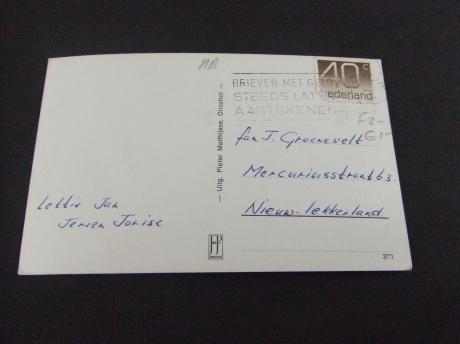 MB
40c
nederland
BRIEVEN MET GELD
STEEDS LATEN
AANTEKENEN
F2-
€1-
fam J. Groenevelt
Mercuriusstraat 63.
Nieuw-Lekkerland
Lettie Jan
Jeroen Jorise
— Uitg. Pieter Matthijsse, Oirschot —
373